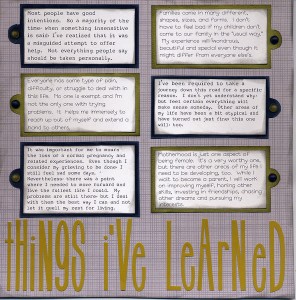 Most people have good
intentions. So a majority of the
time when something insensitive
is said I've realized that it was
a misguided attempt to offer
help. Not everything people say
should be taken personally.
Families come in many different
shapes, sizes, and forms. I don't
have to feel bad if my children don't
come to our family in the "usual way."
My experience will be
beautiful and special even though it
might differ from everyone else's.
Everyone has some type of pain,
difficulty, or struggle to deal with in
this life. No one is exempt. I'm
not the only one with trying
problems. It helps me immensely to
reach up out of myself and extend a
hand to others.
I've been required to take a
journey down this road for a specific
reason. I don't yet understand why
but feel certain everything will
make sense someday. Other areas of
my life have been a bit atypical and
have turned out just fine this one
will too.
It was important for me to mourn
the loss of a normal pregnancy and
related experiences. Even though I
consider my mourning to be done I
still feel sad some days.
Nevertheless there was a point
where I needed to move forward and
live the rainest life I could. My
problems are still there but I deal
with them the best way I can and not
let it spoil my zest for living.
Motherhood is just one aspect of
being female. It's a very worthy one,
but there are other areas of my life I
need to be developing, too. While I
wait to become a parent, I will work
on improving myself, honing other
skills, investing in friendships, chasing
other dreams and pursuing my
interests.
things I've Learned